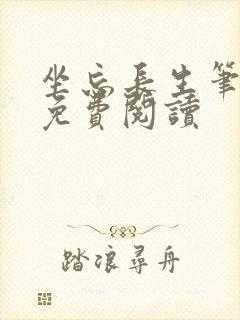 坐忘長生筆
免費閱讀
踏浪尋舟